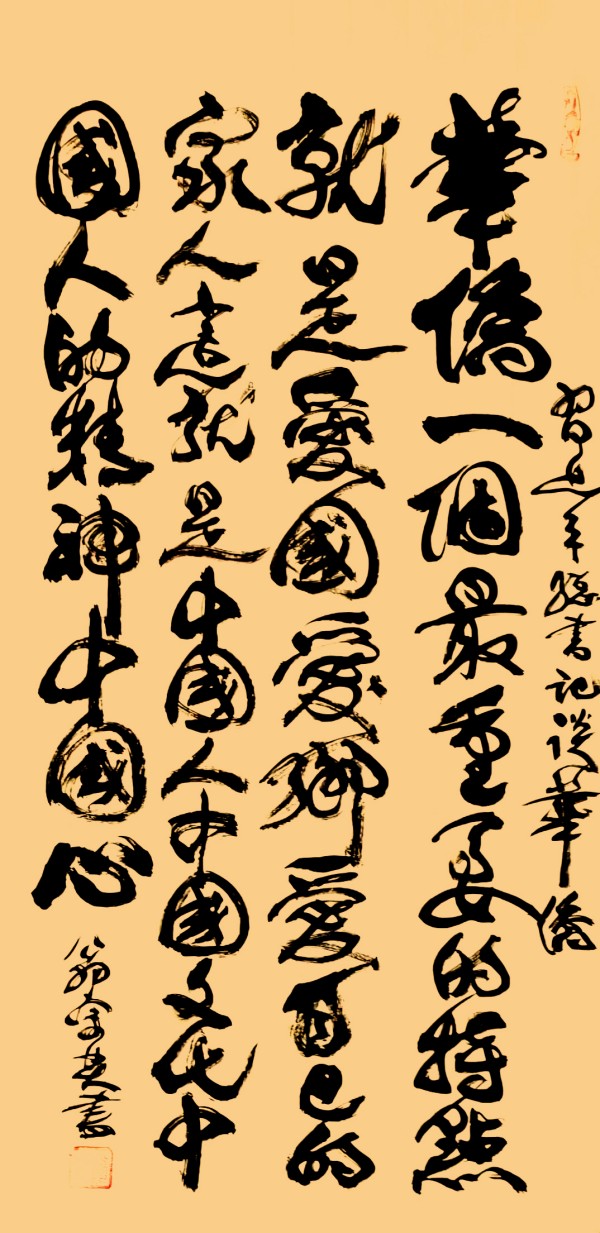 習近平總書記談華僑
華僑一個最重要的特點
就是愛國愛鄉愛自己的
家人這就是中國人中國文化中
國人的精神中國心
翁書